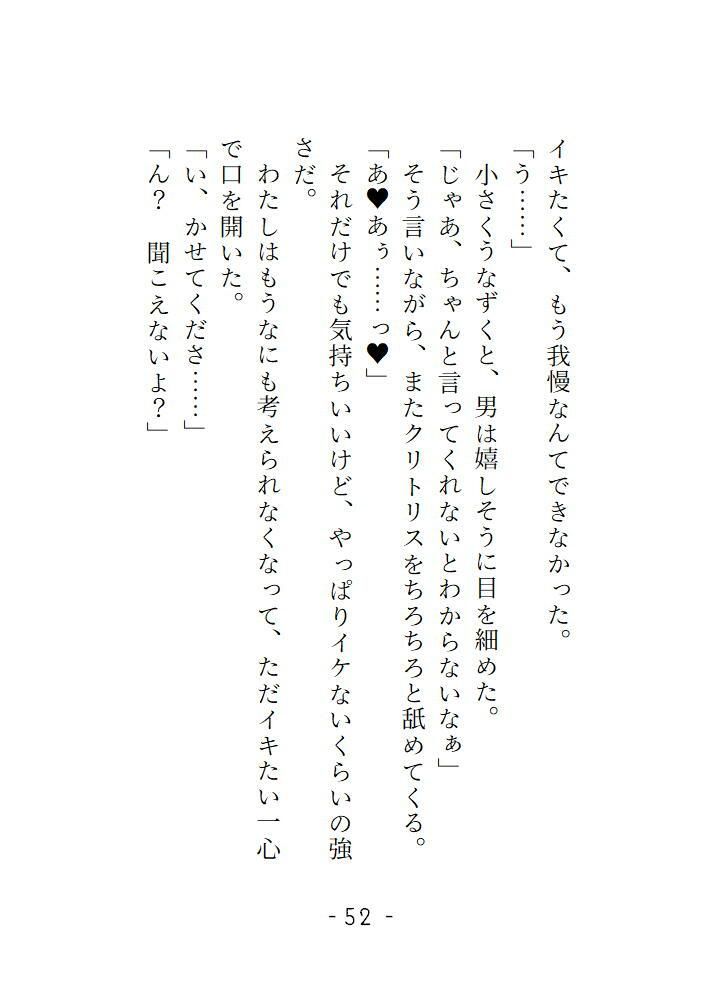 イキたくて、もう我慢なんてできなかった。
「う……」
　小さくうなずくと、男は嬉しそうに目を細めた。
「じゃあ、ちゃんと言ってくれないとわからないなぁ」
　そう言いながら、またクリトリスをちろちろと舐めてくる。
「あ♥あぅ……っ♥」
　それだけでも気持ちいいけど、やっぱりイケないくらいの強
さだ。
　わたしはもうなにも考えられなくなって、ただイキたい一心
で口を開いた。
「い、かせてくださ……」
「ん？　聞こえないよ？」
- 52 -